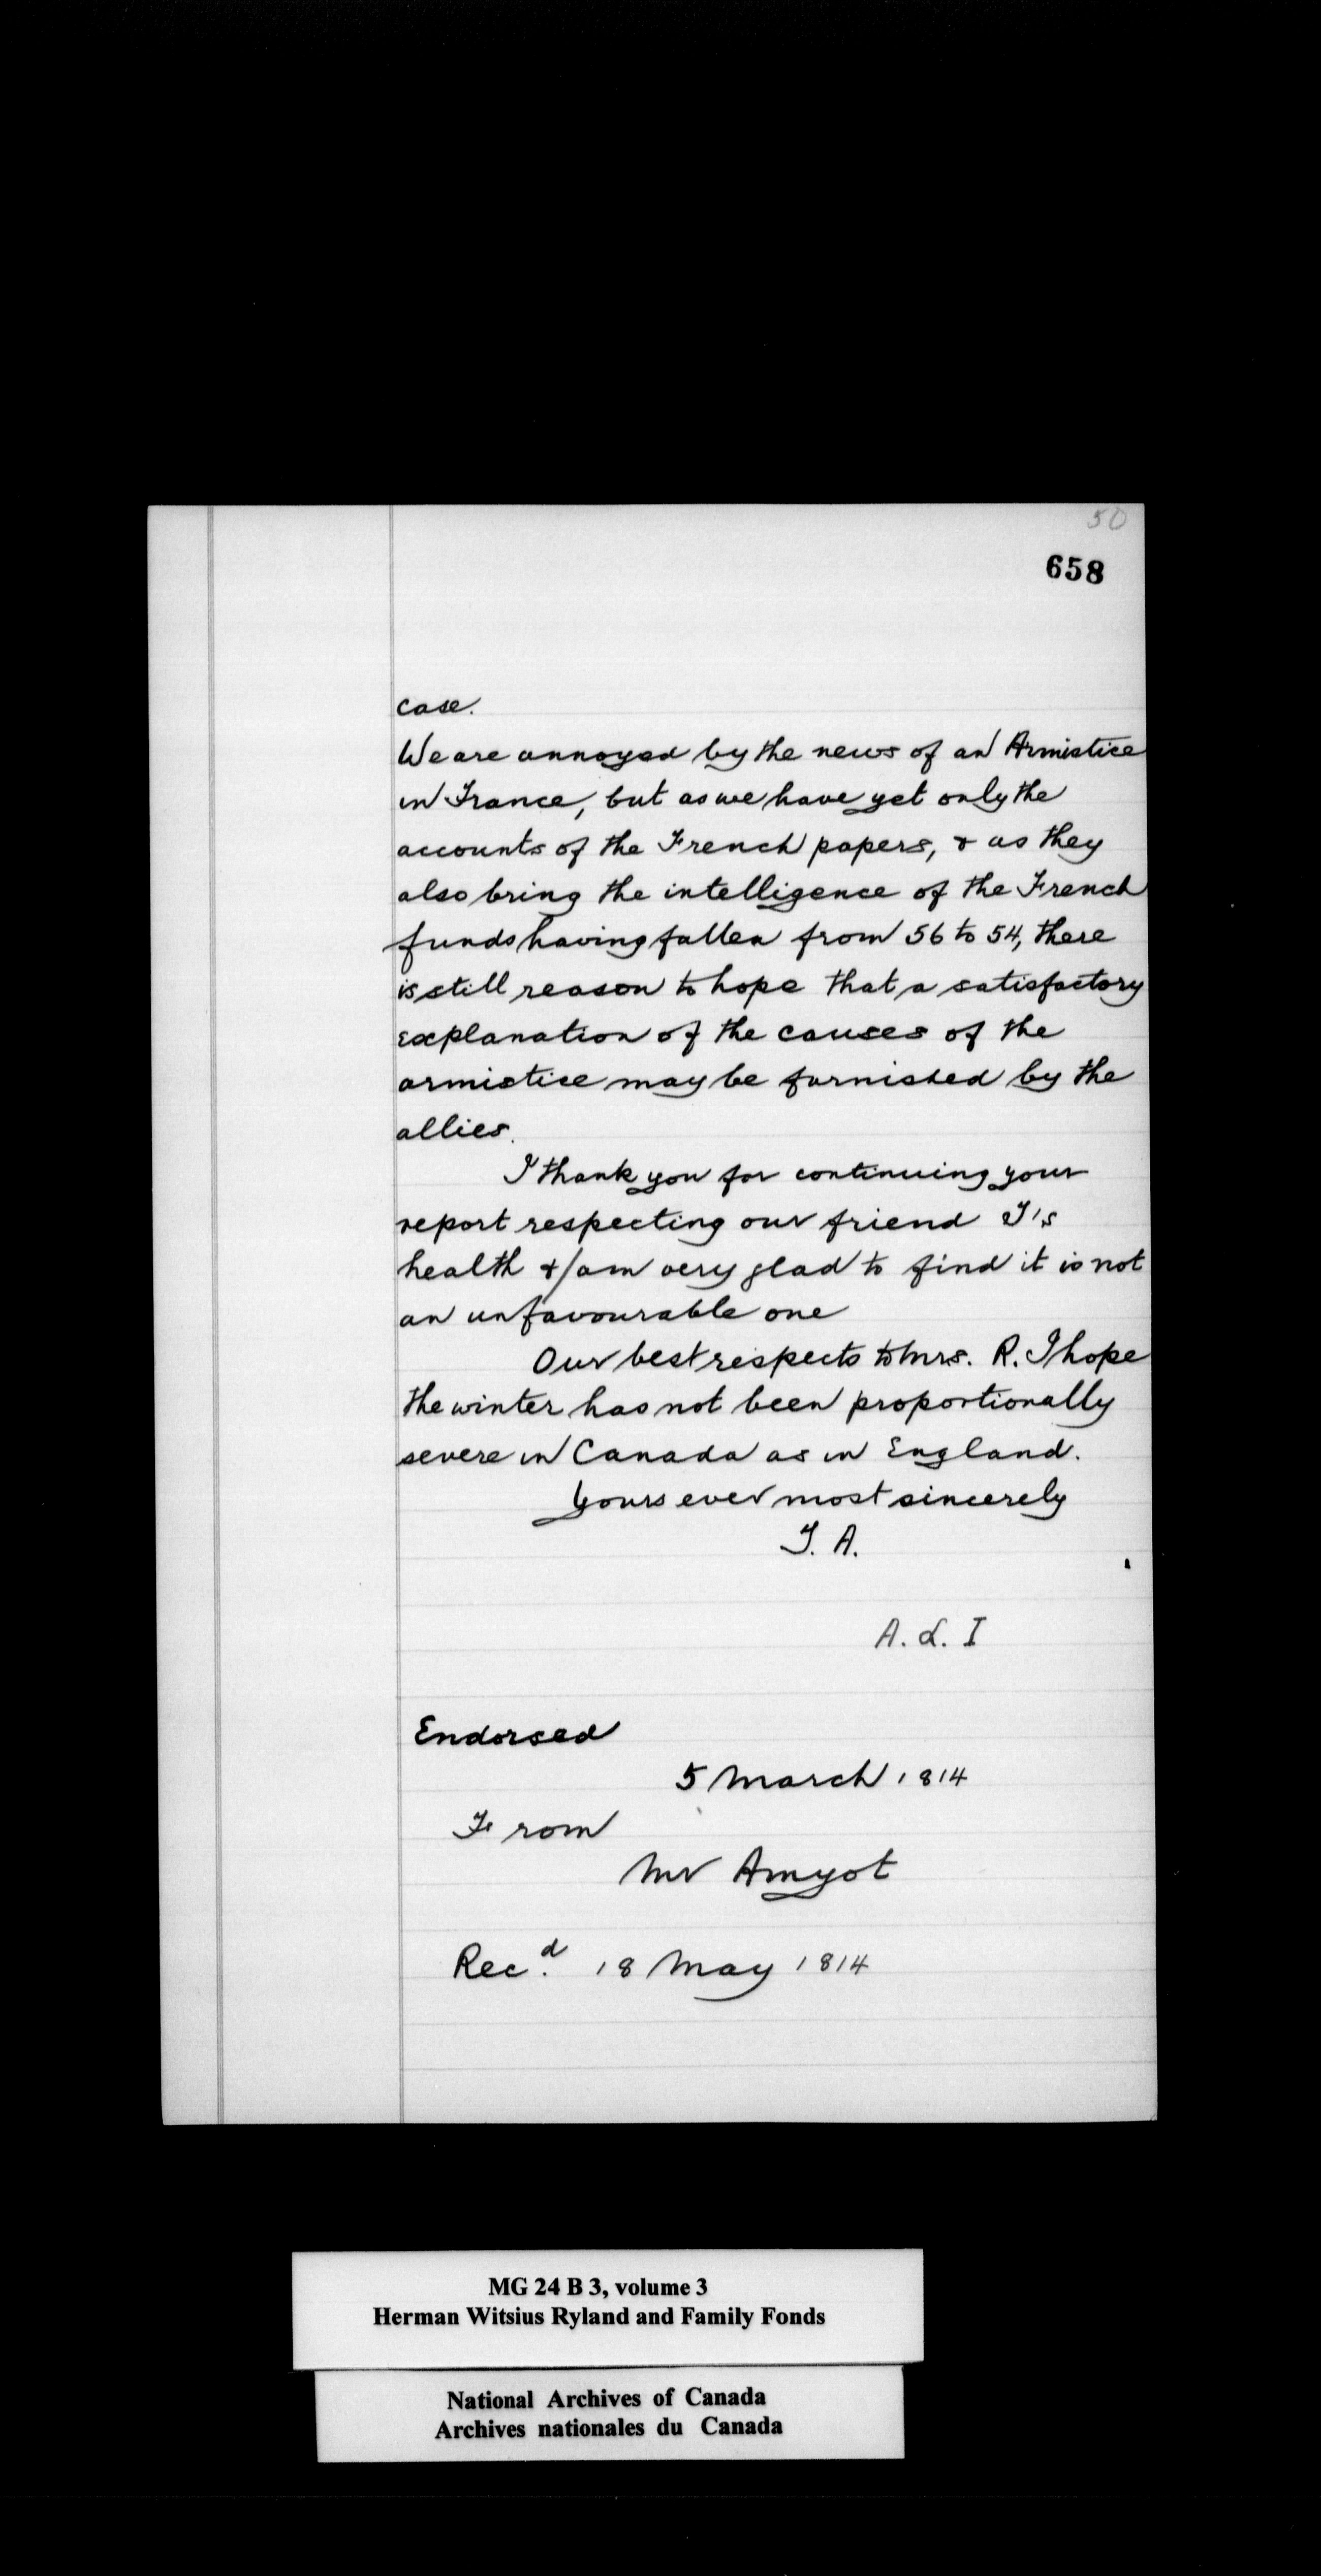 50
658
case.
We are annoyed by the news of an Armistice
in France, but as we have yet only the
accounts of the French papers, & as they
also bring the intelligence of the French
funds having fallen from 56 to 54, there
is still reason to hope that a satisfactory
explanation of the causes of the
armistice may be furnished by the
allies.
I thank you for continuing your
report respecting our friend T's
health & I am very glad to find it is not
an unfavourable one
Our best respects to Mrs. R. I hope
the winter has not been proportionally
severe in Canada as in England.
Yours ever most sincerely
T. A.
A. L. I
Endorsed
5 March 1814
From
Mr Amyot
Rec.d 18 May 1814
MG 24 B 3, volume 3
Herman Witsius Ryland and Family Fonds
National Archives of Canada
Archives nationales du Canada